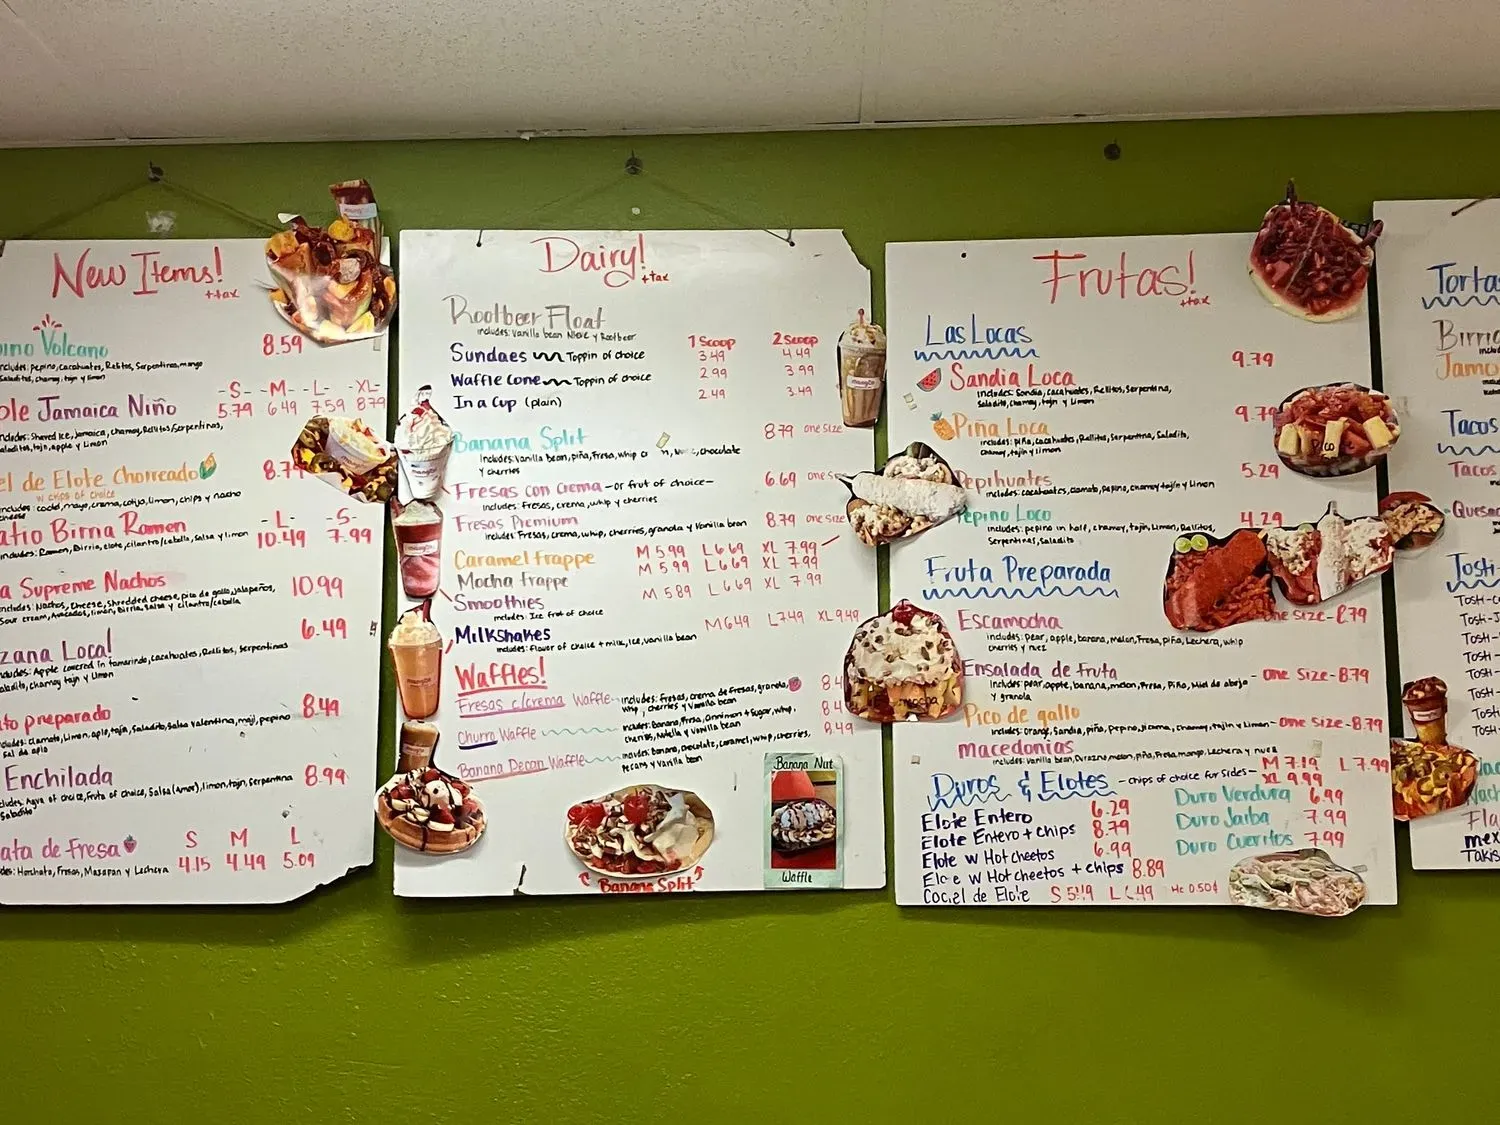 New Items!
+tax
ino Volcano 8.59
ncludes: pepino, cacahuates, Rellitos, Serpentinas, mango
Saladitos, chamoy, tajin y limon
-S- -M- -L- -XL-
ole Jamaica Niño 5.79 6.49 7.59 8.79
ncludes: Shaved Ice, Jamaica, chamoy, Rellitos/Serpentinas,
Saladitos, tajin, apple y Limon
el de Elote Chorreado 8.79
w chips of choice
mayo, crema, cotija, limon, chips y nacho
cheese
-L- -S-
atio Birria Ramen 10.49 7.99
ncludes: Ramen, Birria, elote, cilantro/cebolla, salsa y limon
a Supreme Nachos 10.99
ncludes: Nachos, Cheese, shredded cheese, pico de gallo, jalapeños,
Sour cream, Avocados, limon, Birria, salsa y cilantro/cebolla
6.49
zana Loca!
ncludes: Apple covered in tamarindo, cacahuates, Rellitos, Serpentinas
aladito, chamoy tajin y Limon
to preparado 8.49
cludes: clamato, Limon, apio, tajin, Saladito, Salsa Valentina, magi, pepino
Sal de apio
Enchilada 8.99
cludes: Agva of choice, Fruta of choice, Salsa (Amor), limon, tajin, serpentina
Saladito
S M L
ata de Fresa 4.15 4.49 5.09
des: Horchata, Fresas, Mazapan y Lechera
Dairy!
+tax
Rootbeer Float
includes: Vanilla bean Nieve y Rootbeer
1 Scoop 2 Scoop
Sundaes Toppin of choice 3.49 4.49
Waffle Cone Toppin of choice 2.99 3.99
In a Cup (plain) 2.49 3.49
Banana Split 8.79 one size
includes: Vanilla Bean, piña, Fresa, whip chocolate
y cherries
Fresas con Crema -or frut of choice- 6.69
includes: Fresas, crema, whip y cherries
Fresas Premium 8.79 one size
includes: Fresas, crema, whip, cherries, granola y Vanilla bean
Caramel frappe M 5.99 L 6.69 XL 7.99
Mocha Frappe M 5.99 L 6.69 XL 7.99
Smoothies M 5.89 L 6.69 XL 7.99
includes: Ice frut of choice
Milkshakes M 6.49 L 7.49 XL 9.49
includes: flavor of choice + milk, ice, vanilla bean
Waffles!
Fresas c/crema Waffle includes: Fresas, crema de fresas, granola, 8.4
whip, cherries y Vanilla bean
Churro Waffle includes: Banana, Fresa, Cinnimon + Sugar, whip, 8.4
cherries, Nutella y Vanilla bean
Banana Pecan Waffle includes: Banana, chocolate, caramel, whip, cherries, 8.49
Pecans y Vanilla bean
Banana Split
Banana Nut
Waffle
Frutas!
+tax
Las Locas
Sandia Loca 9.79
includes: Sandia, cacahuates, Rellitos, Serpentina,
Saladito, chamoy, tajin y Limon
Piña Loca 9.79
includes: piña, cacahuates, Rellitos, Serpentina, Saladito,
chamoy, tajin y limon
Pepihuates 5.29
includes: cacahuates, clamato, Pepino, chamoy tajin y Limon
Pepino Loco 4.29
includes: pepino in half, chamoy, tajin, Limon, Rellitos,
Serpentinas, Saladito
Fruta Preparada
Escamocha one size-8.79
includes: pear, apple, banana, melon, Fresa, piña, Lechera, whip
cherries y nuez
Ensalada de fruta - one Size-8.79
includes: pear, apple, banana, melon, Fresa, Piña, Miel de abeja -
y granola
Pico de gallo
includes: Orange, Sandia, piña, Pepino, jicama, Chamoy, tajin y Limon - one size-8.79
macedonias
includes: Vanilla bean, Durazno, melon, piña, Fresa, mango, Lechera y nuez
M 7.19 L 7.99
XL 9.99
Duros & Elotes -chips of choice fur sides-
Elote Entero 6.29
Elote Entero + chips 8.79
Elote w Hot cheetos 6.99
Elote w Hotcheetos + chips 8.89
Coctel de Elote S 5.49 L 6.49 Hc 0.50¢
Duro Verdura 6.99
Duro Jaiba 7.99
Duro Cueritos 7.99
Tortas
Birria
Jamo
Tacos
Tacos
Quesa
Tosti-
Tosti-C
Tosti-J
Tosti-
Tosti-
Tosti-
Tosti-
Tosti-
Nach
Fla
mex
Takis